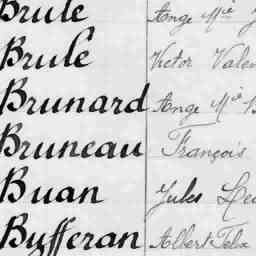 Brule Ange Mie
Brule Victor Valen
Brunard Ange Mie
Bruneau François
Buan Jules Leo
Byfferan Albert Felix